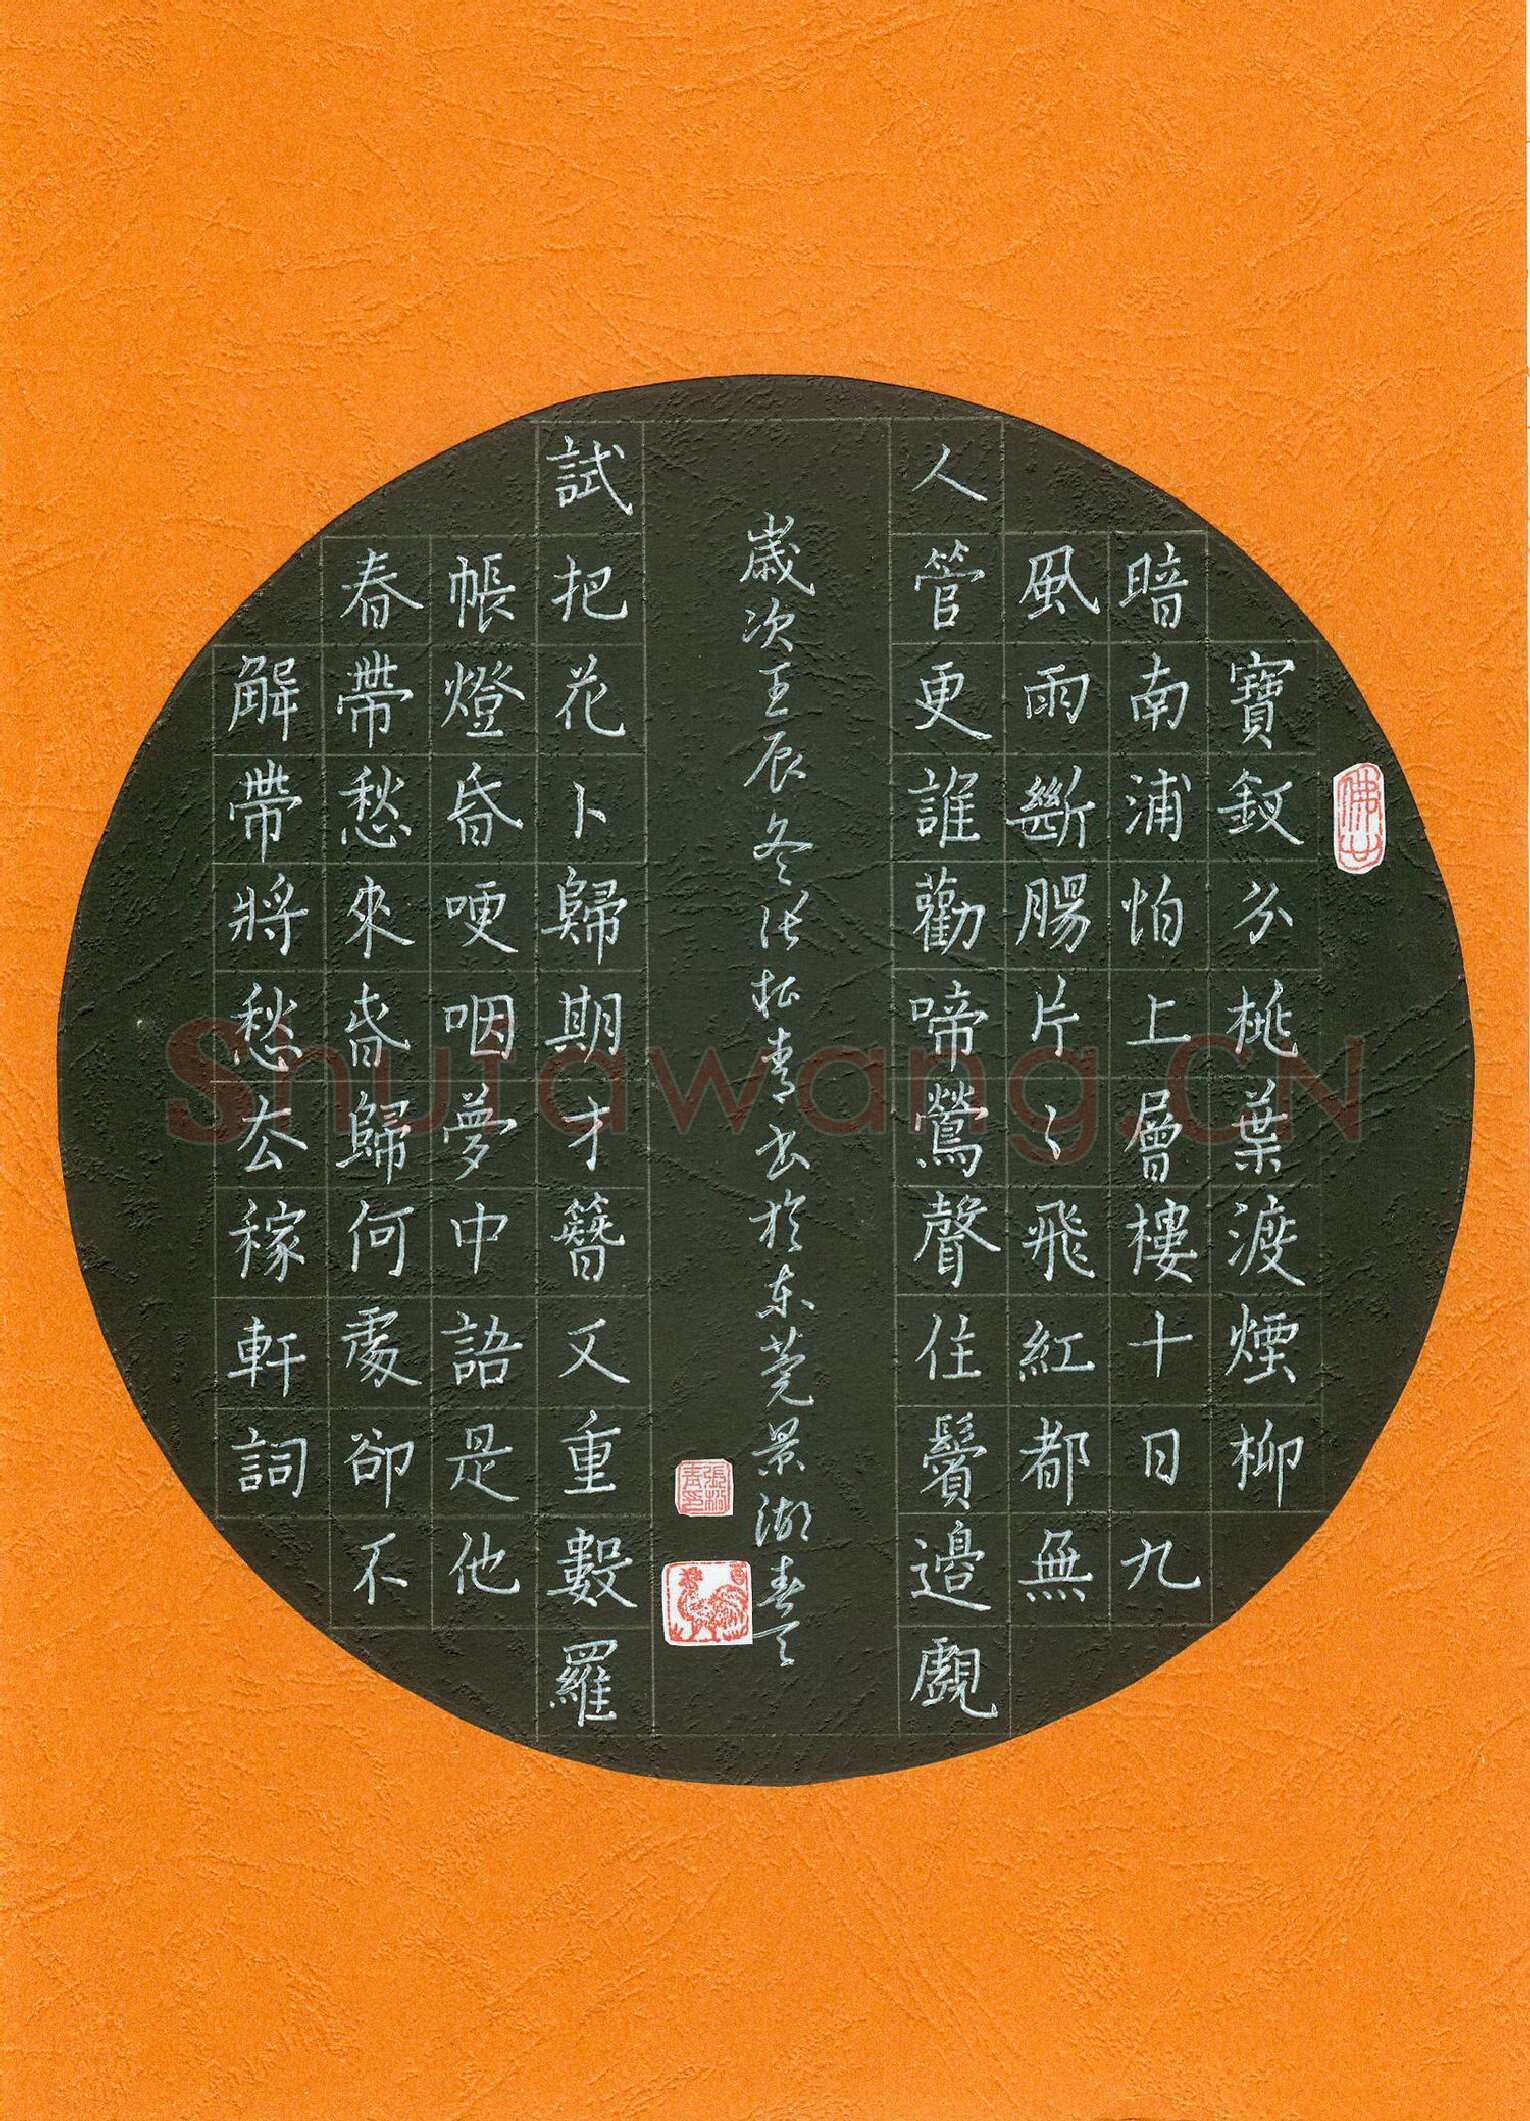 寶釵分桃葉渡煙柳
暗南浦怕上層樓十日九
風雨斷腸片々飛紅都無
人管更誰勸啼鶯聲住鬢邊覷
試把花卜歸期才簪又重數羅
帳燈昏哽咽夢中語是他
春帶愁來春歸何處卻不
解帶將愁去稼軒詞
歲次壬辰冬張松青書於东莞景湖春天
佛山
張松青印
Shufawang.CN